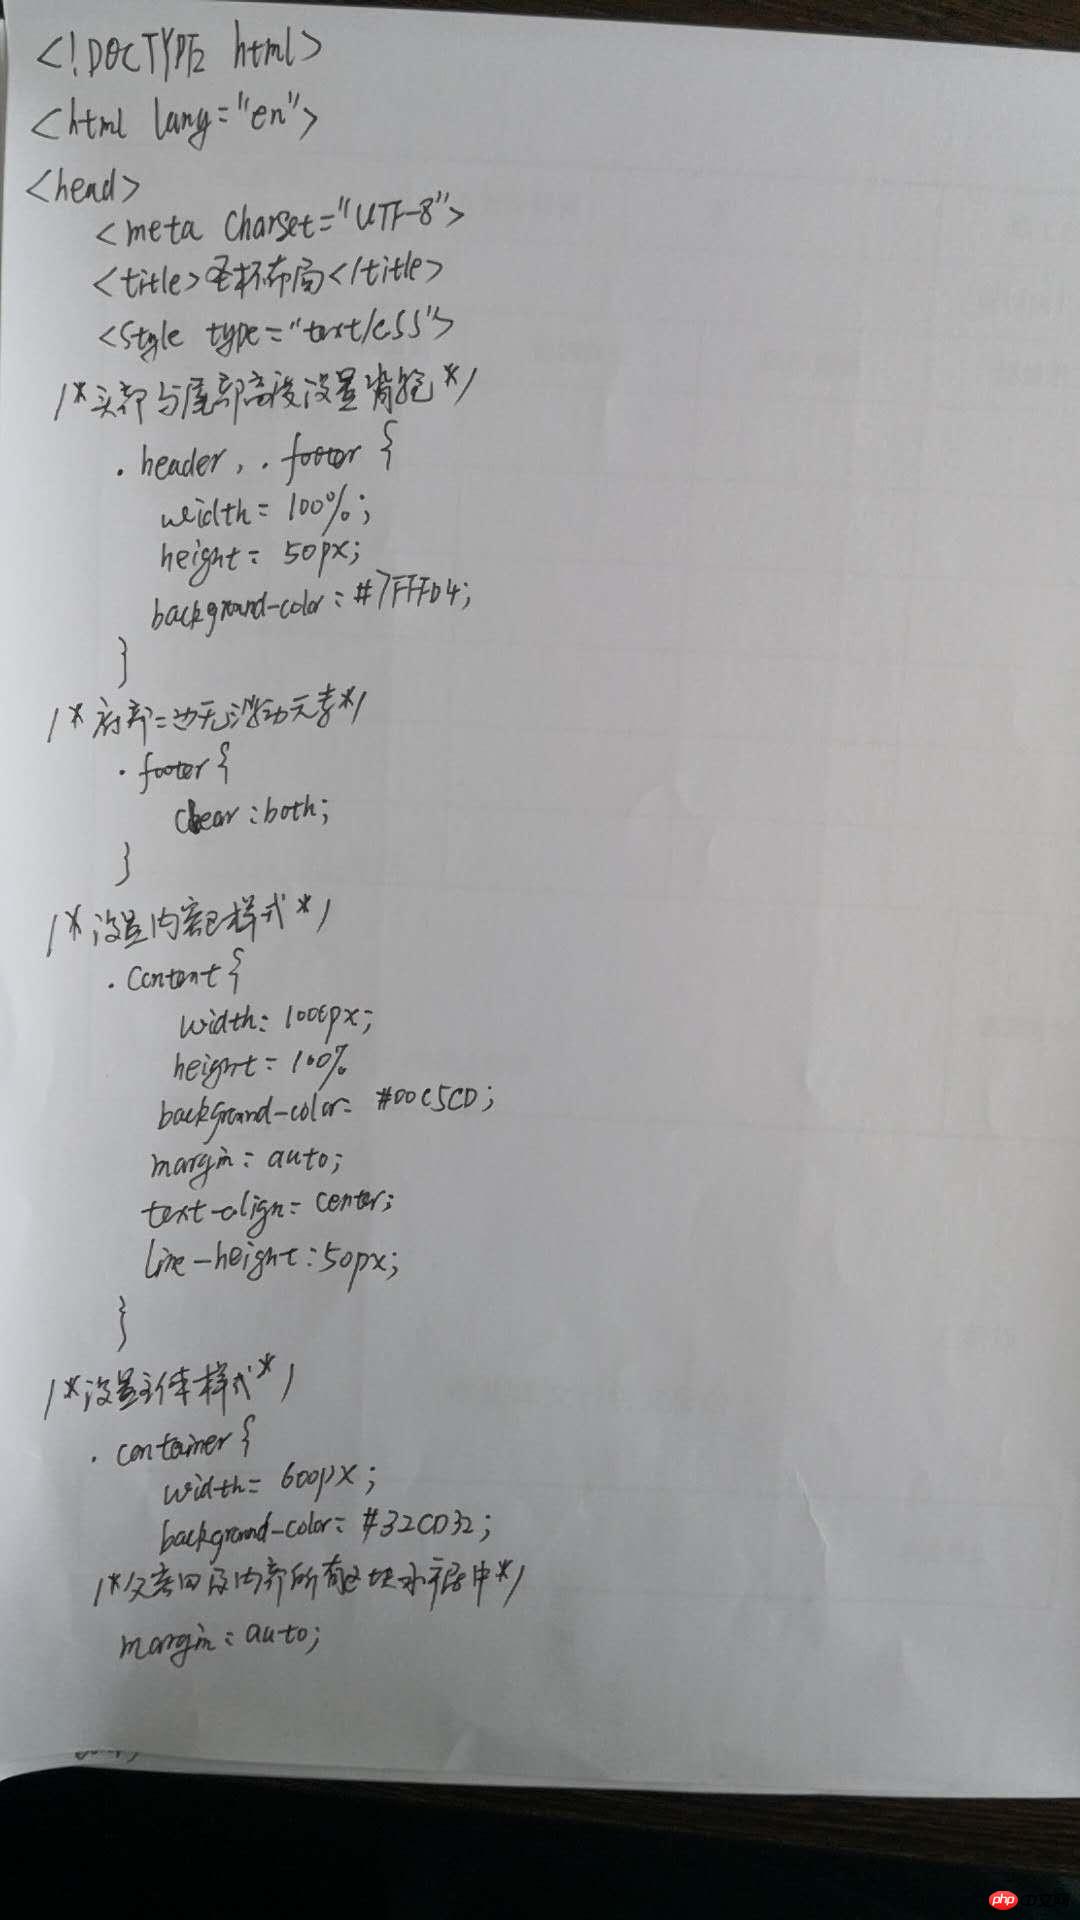 <!DOCTYPE html>
<html lang="en">
<head>
<meta charset="UTF-8">
<title>圣杯布局</title>
<style type="text/css">
/*头部与尾部高度设置背景色*/
.header, .footer {
width: 100%;
height: 50px;
background-color: #7FFFD4;
}
/*底部二边无浮动元素*/
.footer{
clear:both;
}
/*设置内容区样式*/
.content{
width: 1000px;
height: 100%
background-color: #00C5CD;
margin: auto;
text-align: center;
line-height:50px;
}
/*设置主体样式*/
.container{
width: 600px;
background-color: #32CD32;
/*父类内部所有区块水平居中*/
margin: auto;
php 中文网